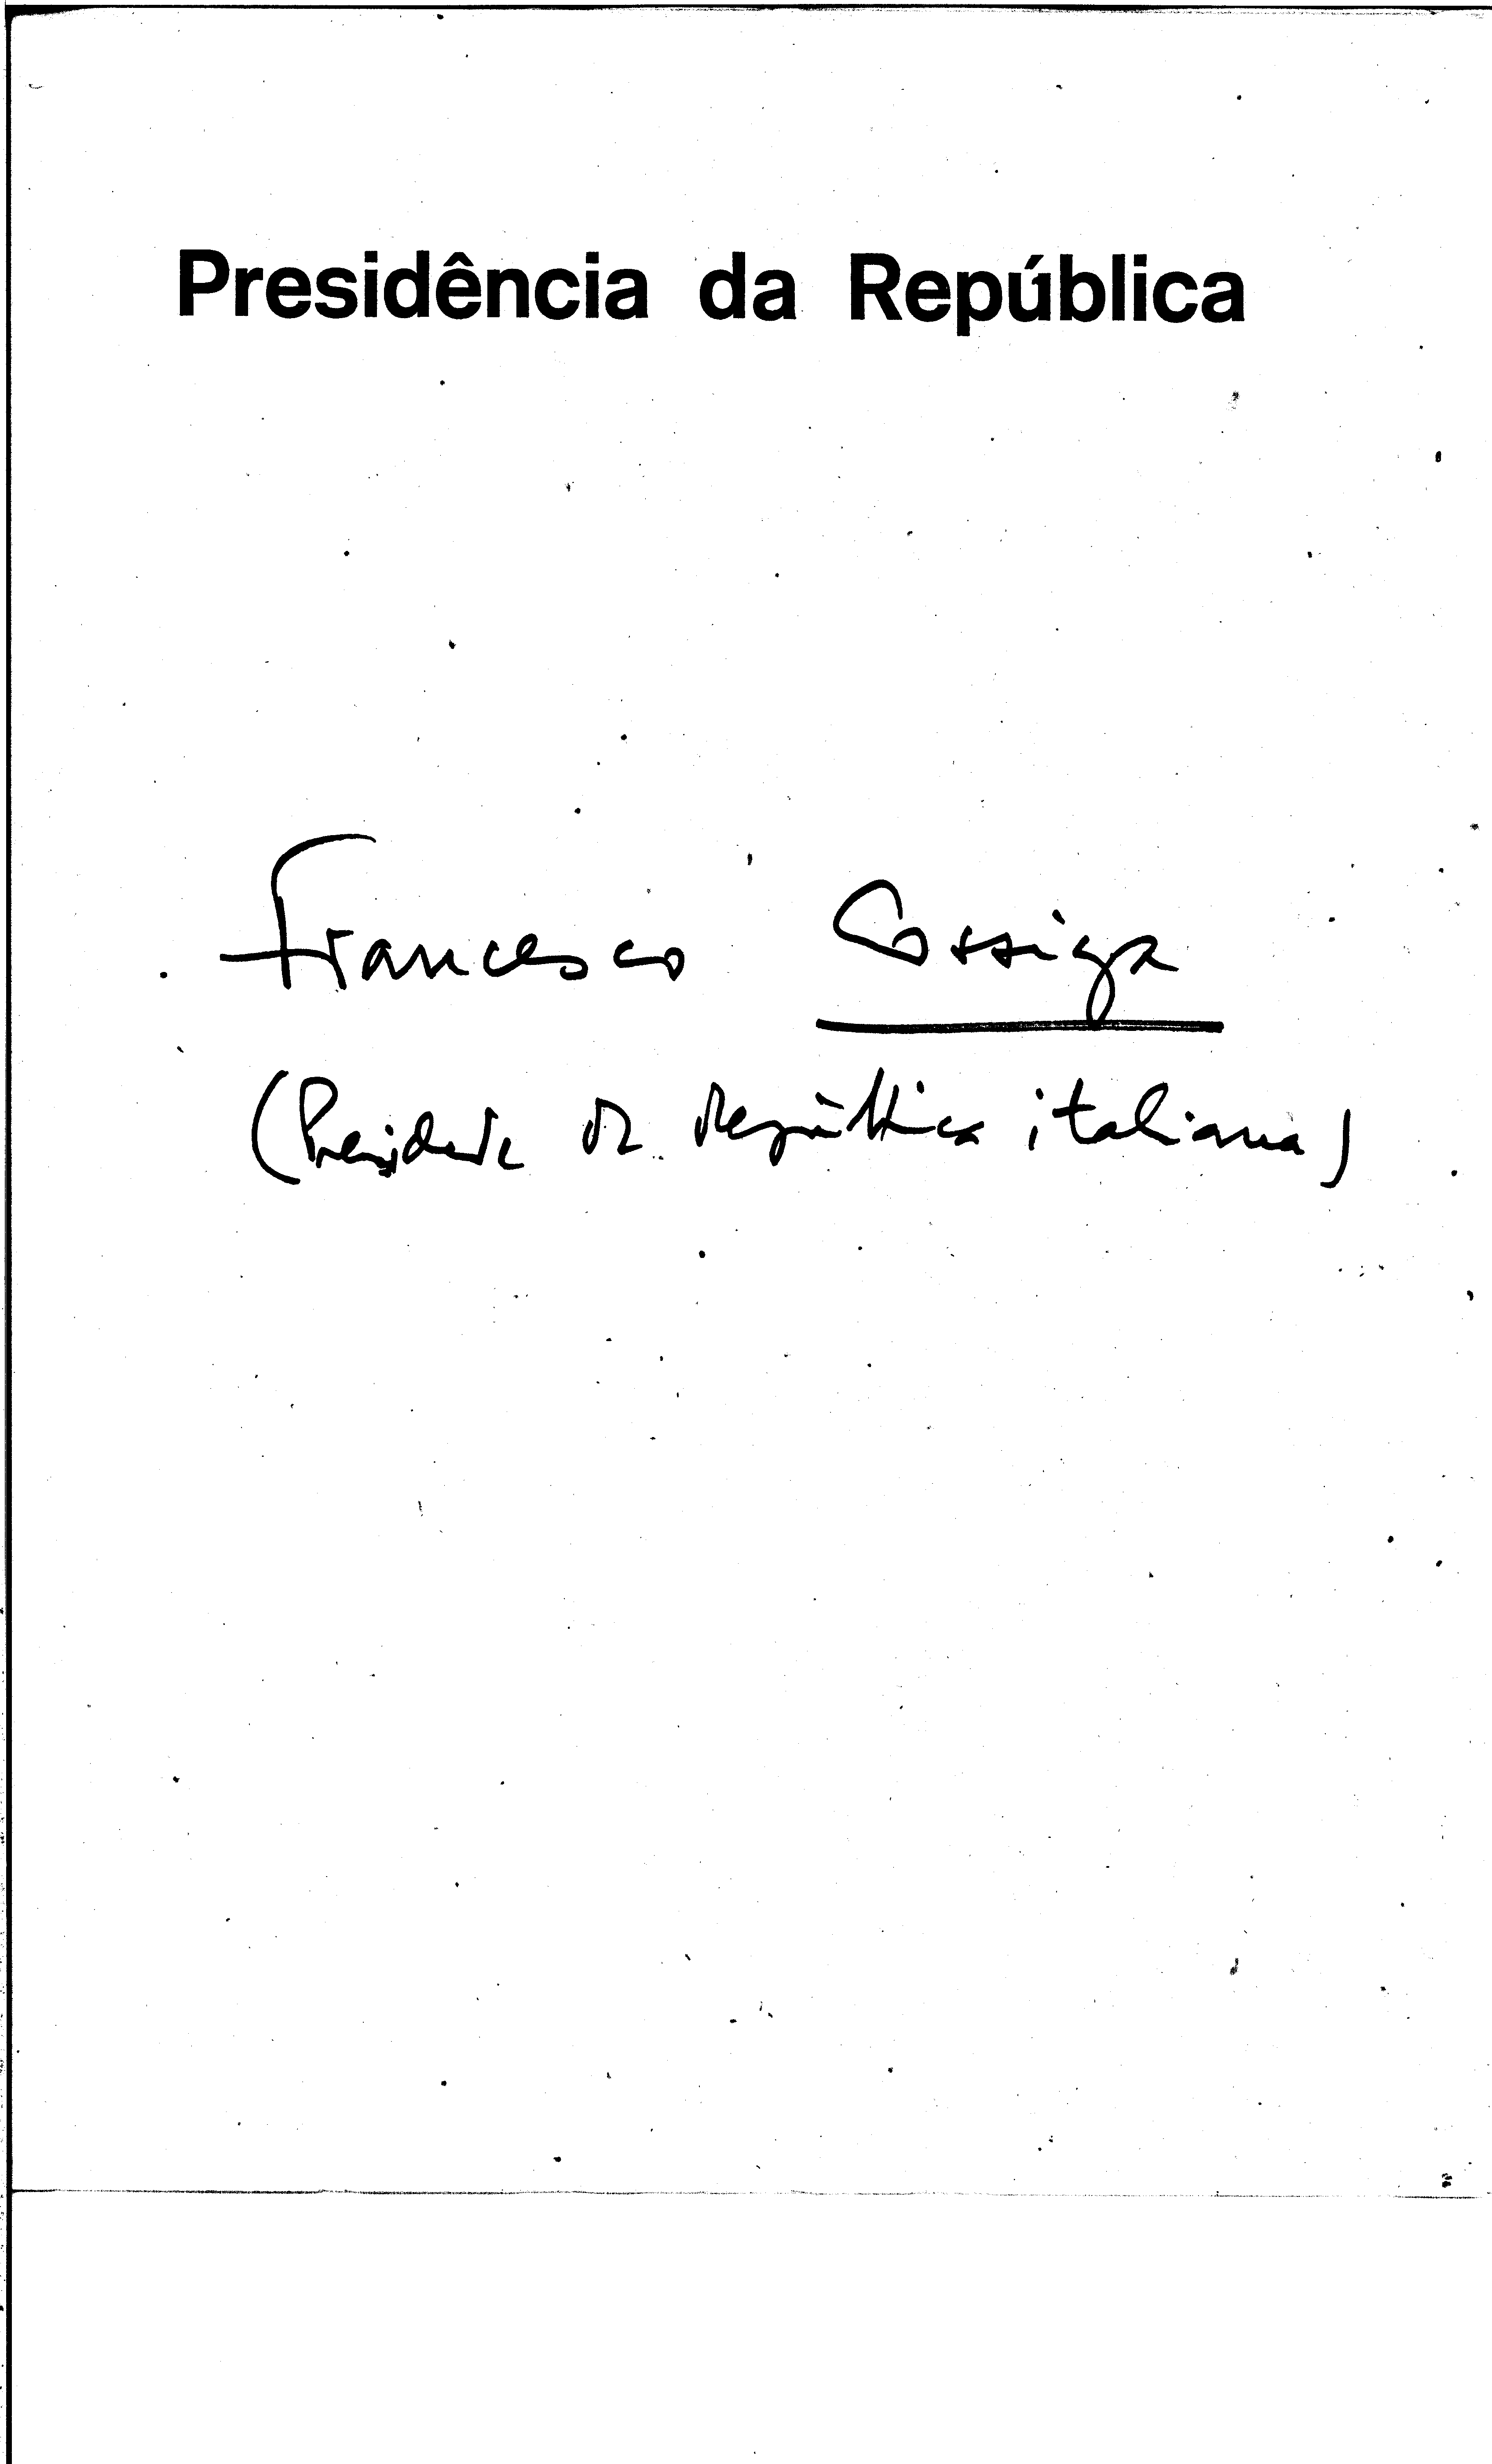 Presidência da República
Francesco Cossiga
(Presidente da República italiana)